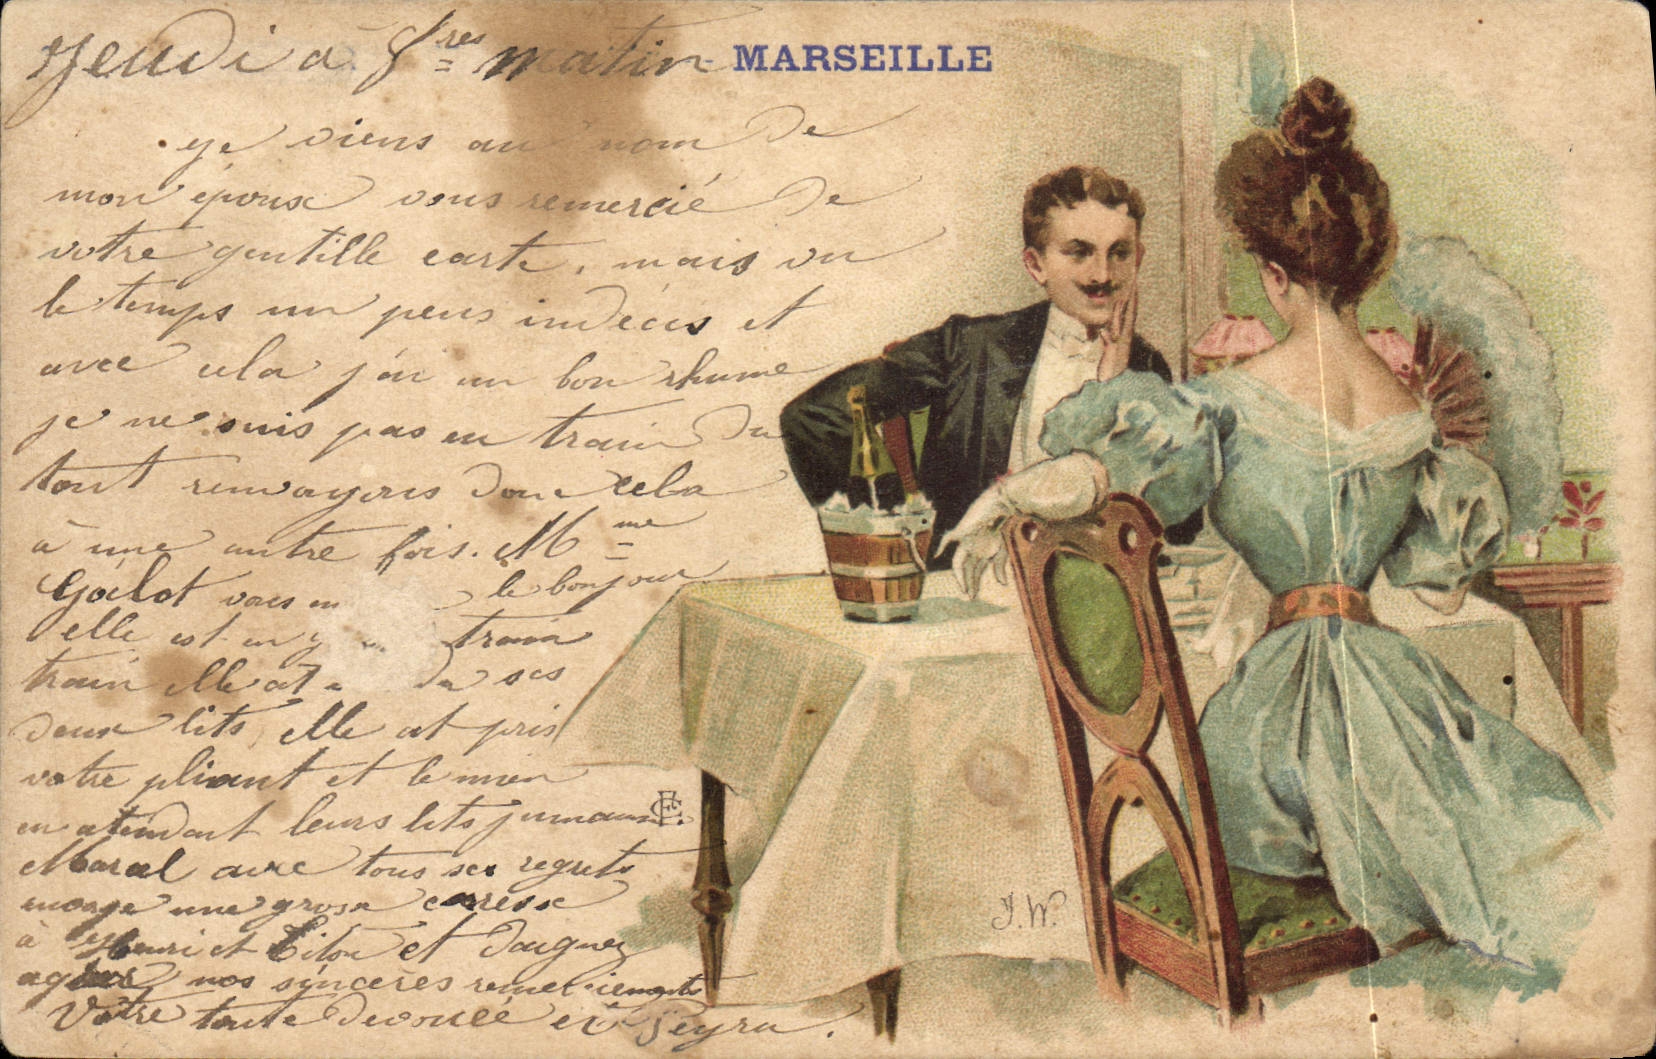 Jeudi à 8 res matin - MARSEILLE
. je viens au nom de
mon époux vous remercié de
votre gentille carte, mais vu
le temps un peus indécis et
avec cela j'ai un bon rhume
je ne suis pas en train du
tout renvoyons donc cela
à une autre fois. Mme
vous en le bonjour
elle est en train
train elle at de ses
deux lits, elle at pris
votre pliant et le mien
en atendant leurs lits jumaux.
Marcel avec tous ses regrets
envoye une grosse caresse
à Henri et et daignez
agréer nos sincères remerciements
Votre toute devouée
J.W.